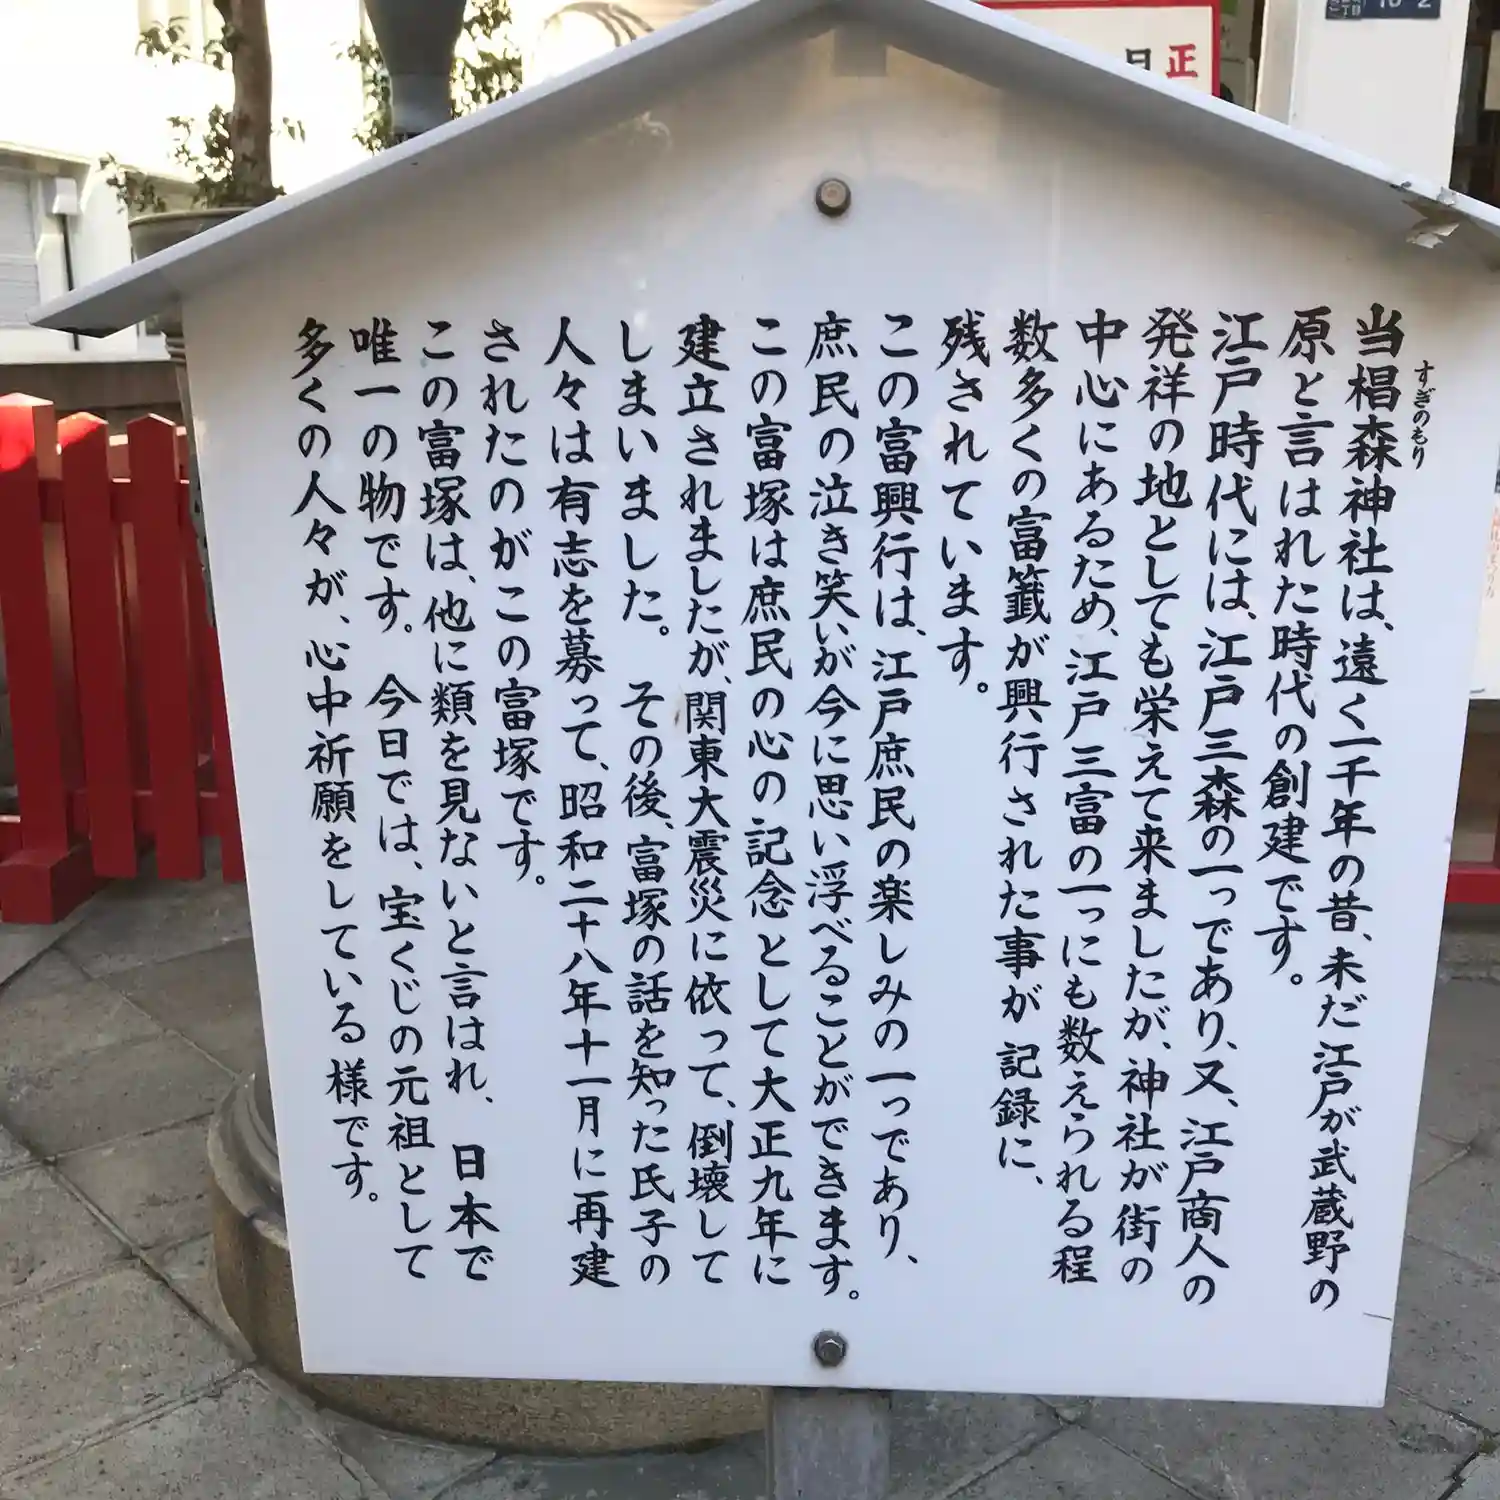 当椙森神社は、遠く一千年の昔、未だ江戸が武蔵野の
すぎのもり
原と言はれた時代の創建です。
江戸時代には、江戸三森の一っであり、又、江戸商人の
発祥の地としても栄えて来ましたが、神社が街の
中心にあるため、江戸三富の一っにも数えられる程
数多くの富籤が興行された事が 記録に、
残されています。
この富興行は、江戸庶民の楽しみの一っであり、
庶民の泣き笑いが今に思い浮べることができます。
この富塚は庶民の心の記念として大正九年に
建立されましたが、関東大震災に依って、倒壊して
しまいました。 その後、富塚の話を知った氏子の
人々は有志を募って、昭和二十八年十一月に再建
されたのがこの富塚です。
この富塚は、他に類を見ないと言はれ、 日本で
唯一の物です。 今日では、宝くじの元祖として
多くの人々が、心中祈願をしている様です。
日正